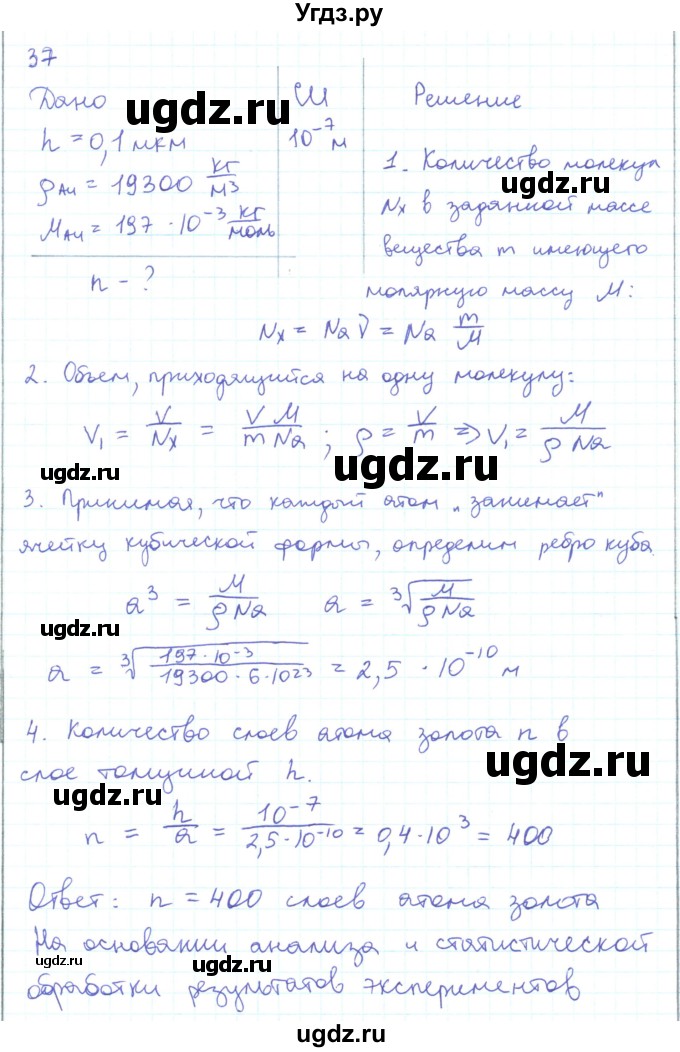 Угдз.ру
37
Дано
СИ
Решение
h = 0,1 мкм
10⁻⁷ м
ρAu = 19300 кг/м3
MAu = 197 · 10⁻³ кг/моль
n - ?
1. Количество молекул
Nx в заданной массе
вещества m имеющего
молярную массу M:
Nx = Na ν = Na m/M
2. Объем, приходящийся на одну молекулу:
V₁ = V/Nx = V M/m Na ; ρ = V/m ⇒ V₁ = M/ρ Na
3. Принимая, что каждый атом „занимает"
ячейку кубической формы, определим ребро куба
a³ = M/ρ Na a = ³√(M/ρ Na)
a = ³√(197 · 10⁻³/19300 · 6 · 10²³) = 2,5 · 10⁻¹⁰ м
4. Количество слоев атома золота n в
слое толщиной h.
n = h/a = 10⁻⁷/2,5 · 10⁻¹⁰ = 0,4 · 10³ = 400
Ответ: n = 400 слоев атома золота
На основании анализа и статистической
обработки результатов экспериментов
ugdz.ru
ugdz.ru
ugdz.ru
ugdz.ru
ugdz.ru
ugdz.ru
ugdz.ru
ugdz.ru
ugdz.ru
ugdz.ru
ugdz.ru
ugdz.ru